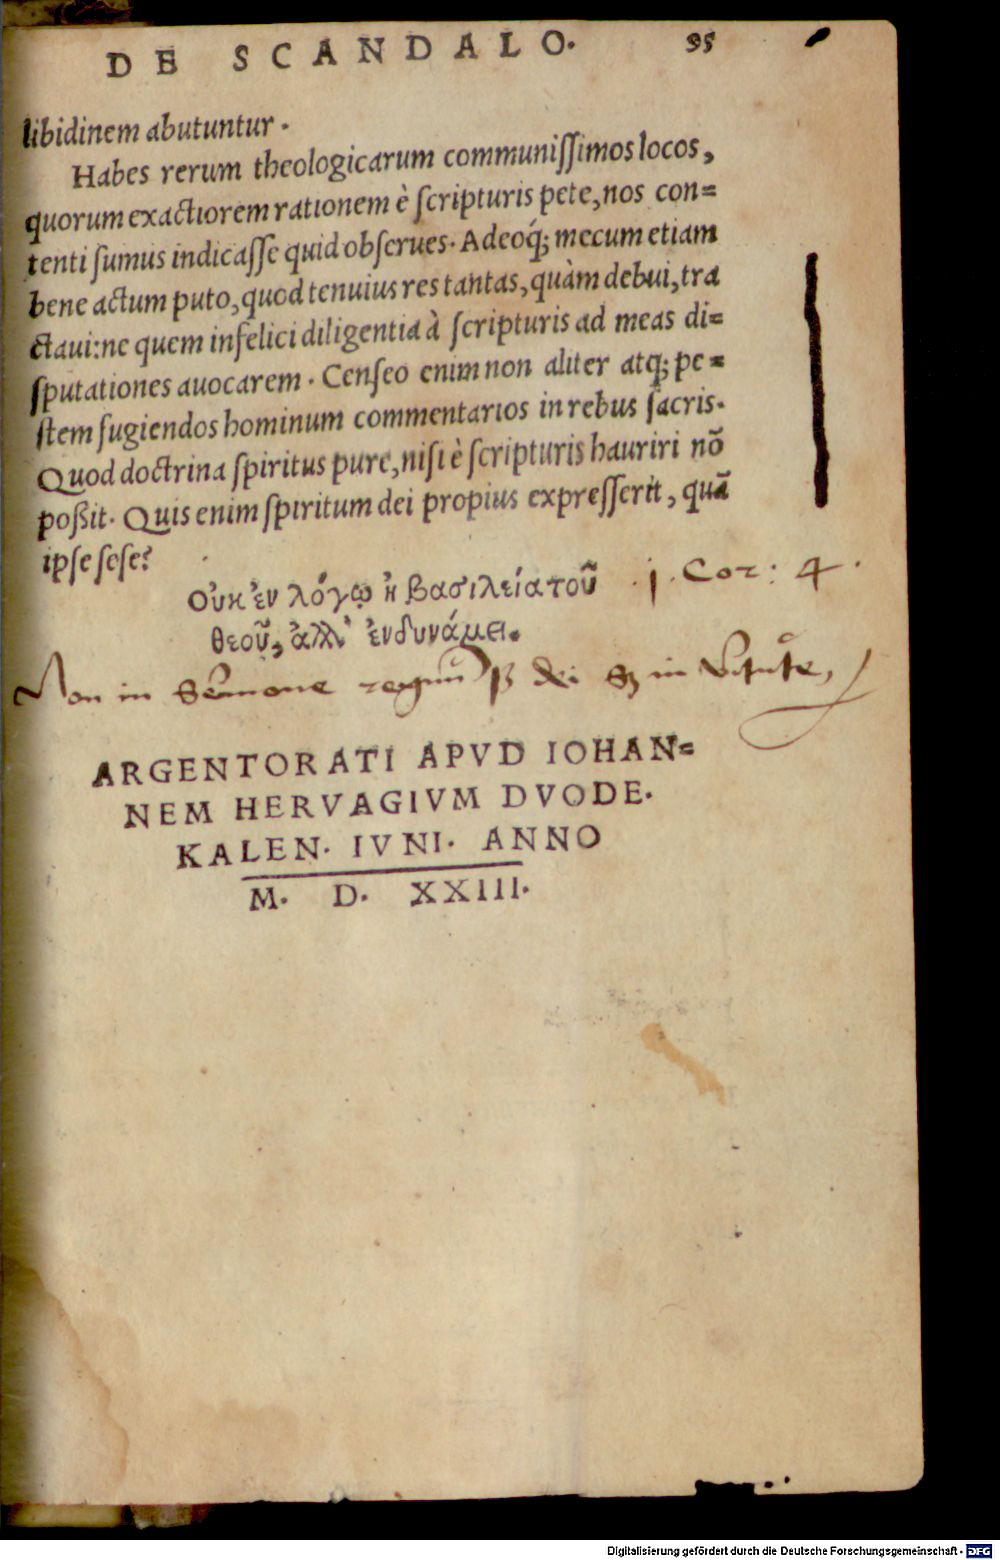 DE SCANDALO. 95
libidinem abutuntur.
Habes rerum theologicarum communiſſimos locos,
quorum exactiorem rationem è ſcripturis pete, nos con=
tenti ſumus indicaſſe quid obſerues. Adeoq́; mecum etiam
bene actum puto, quod tenuius res tantas, quàm debui, tra
ctaui: ne quem infelici diligentia à ſcripturis ad meas di=
ſputationes auocarem. Cenſeo enim non aliter atq; pe=
ſtem fugiendos hominum commentarios in rebus ſacris.
Quod doctrina ſpiritus pure, niſi è ſcripturis hauriri nõ
poßit. Quis enim ſpiritum dei propius expreſſerit, quã
ipſe ſeſe?
Οὐκ ἐν λόγῳ ἡ βασιλεία τοῦ j. Cor: 4.
θεοῦ, ἀλλ' ἐν δυνάμει.
Non in Sermone regnũ dei in Virtute,
ARGENTORATI APVD IOHAN=
NEM HERVAGIVM DVODE.
KALEN. IVNI. ANNO
M. D. XXIII.
Digitalisierung gefördert durch die Deutsche Forschungsgemeinschaft - DFG